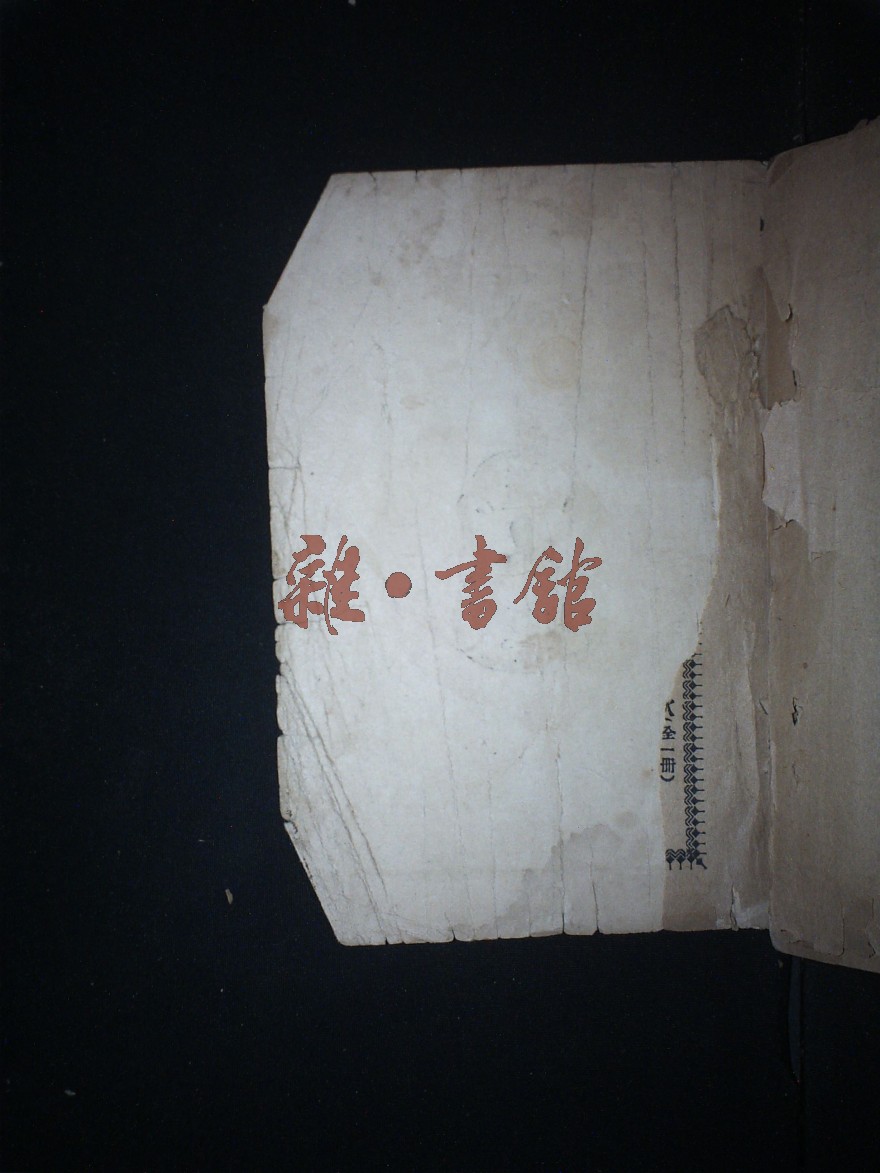 雜·書館
(全一冊)